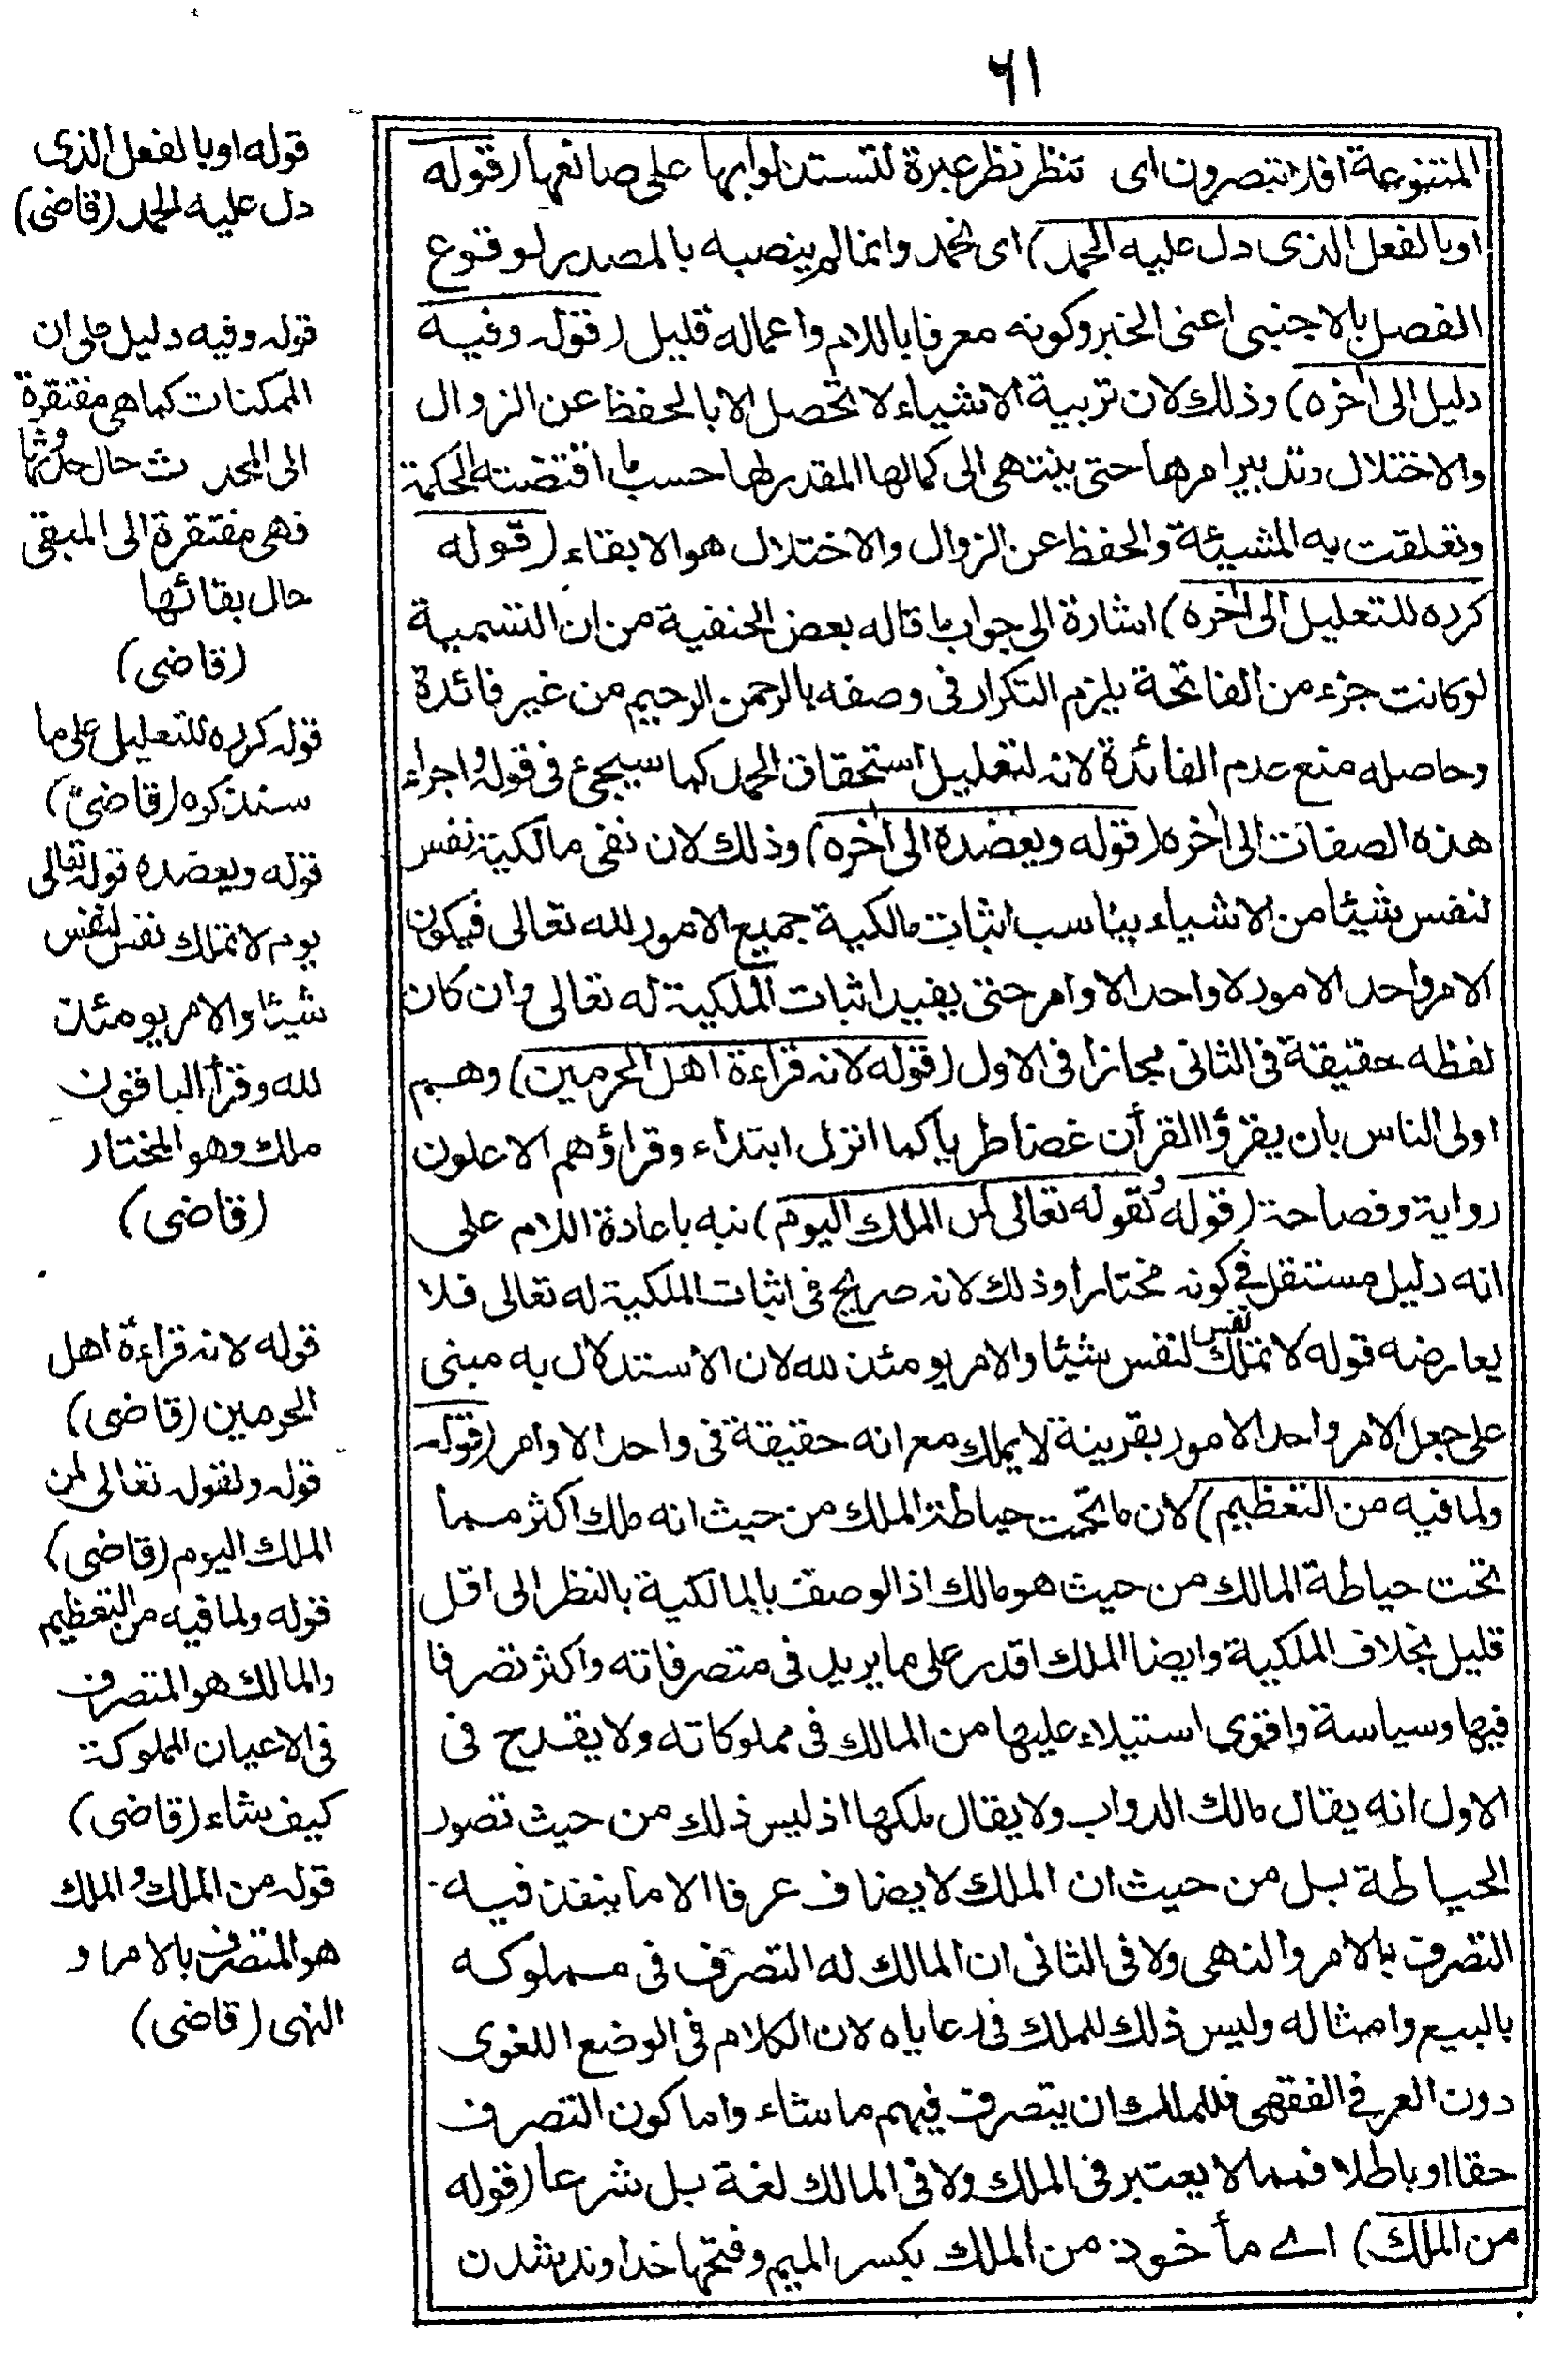 ٦١
المتنوعة افلا تبصرون اى تنظر نظر عبرة لتستدلوا بها على صانعها (قوله
اوبالفعل الذى دل عليه الحمد) اى نحمد وانما لم ينصبه بالمصدر لوقوع
الفصل بالاجنبى اعنى الخبر وكونه معرفا باللام واعماله قليل (قوله وفيه
دليل الى اخره) وذلك لان تربية الاشياء لا تحصل الا بالحفظ عن الزوال
والاختلال وتدبير امرها حتى ينتهى الى كمالها المقدر لها حسب ما اقتضته الحكمة
وتعلقت به المشيئة والحفظ عن الزوال والاختلال هو الابقاء (قوله
كرره للتعليل الى اخره) اشارة الى جواب ما قاله بعض الحنفية من ان التسمية
لو كانت جزء من الفاتحة يلزم التكرار فى وصفه بالرحمن الرحيم من غير فائدة
وحاصله منع عدم الفائدة لانه لتعليل استحقاق الحمد كما سيجئ فى قوله واجراء
هذه الصفات الى اخره (قوله ويعضده الى اخره) وذلك لان نفى مالكية نفس
لنفس شيئا من الاشياء يناسب اثبات مالكية جميع الامور لله تعالى فيكون
الامر واحد الامور لا واحد الاوامر حتى يفيد اثبات الملكية له تعالى وان كان
لفظه حقيقة فى الثانى مجازا فى الاول (قوله لانه قراءة اهل الحرمين) وهم
اولى الناس بان يقرؤا القرأن غضا طريا كما انزل ابتداء وقراؤهم الاعلون
رواية وفصاحة (قوله ولقوله تعالى لمن الملك اليوم) نبه باعادة اللام على
انه دليل مستقل فى كونه مختارا وذلك لانه صريح فى اثبات الملكية له تعالى فلا
يعارضه قوله لا تملك نفس لنفس شيئا والامر يومئذ لله لان الاستدلال به مبنى
على جعل الامر واحد الامور بقرينة لا يملك مع انه حقيقة فى واحد الاوامر (قوله
ولما فيه من التعظيم) لان ما تحت حياطة الملك من حيث انه ملك اكثر مما
تحت حياطة المالك من حيث هو مالك اذ الوصف بالمالكية بالنظر الى اقل
قليل بخلاف الملكية وايضا الملك اقدر على ما يريد فى متصرفاته واكثر تصرفا
فيها وسياسة واقوى استيلاء عليها من المالك فى مملوكاته ولا يقدح فى
الاول انه يقال مالك الدواب ولا يقال ملكها اذ ليس ذلك من حيث تصور
الحياطة بل من حيث ان الملك لا يضاف عرفا الا ما ينفذ فيه
التصرف بالامر والنهى ولا فى الثانى ان المالك له التصرف فى مملوكه
بالبيع وامثاله وليس ذلك للملك فى رعاياه لان الكلام فى الوضع اللغوى
دون العرفى الفقهى فللملك ان يتصرف فيهم ما شاء واما كون التصرف
حقا او باطلا فمما لا يعتبر فى الملك ولا فى المالك لغة بل شرعا (قوله
من الملك) اے مأخوذ من الملك بكسر الميم وفتحها خداوند شدن
قوله اوبالفعل الذى
دل عليه الحمد (قاضى)
قوله وفيه دليل على ان
الممكنات كما هى مفتقرة
الى المحدث حال حدوثها
فهى مفتقرة الى المبقى
حال بقائها
(قاضى)
قوله كرره للتعليل على ما
سنذكره (قاضى)
قوله ويعضده قوله تعالى
يوم لا تملك نفس لنفس
شيئا والامر يومئذ
لله وقرأ الباقون
ملك وهو المختار
(قاضى)
قوله لانه قراءة اهل
الحرمين (قاضى)
قوله ولقوله تعالى لمن
الملك اليوم (قاضى)
قوله ولما فيه من التعظيم
والمالك هو المتصرف
فى الاعيان المملوكة
كيف شاء (قاضى)
قوله من الملك والملك
هو المتصرف بالامر و
النهى (قاضى)